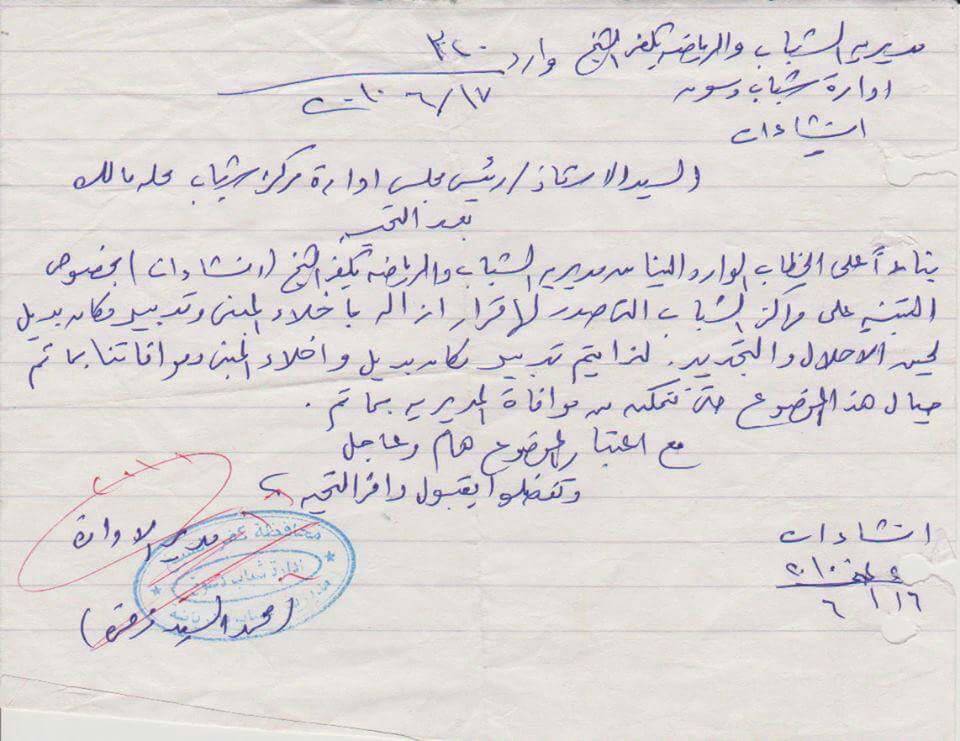 مديرية الشباب والرياضة بكفر الشيخ وارد ٣٢٠
ادارة شباب دسوق ١٧/٦ ٢٠١٠
انشاءات
السيد الاستاذ/ رئيس مجلس ادارة مركز شباب محله مالك
بعد التحيه
بناءاً على الخطاب الوارد الينا من مديريه الشباب والرياضه بكفر الشيخ (انشاءات) بخصوص
التنبيه على مراكز الشباب التى صدر لها قرار ازاله باخلاء المبنى وتدبير مكان بديل
لحين الاحلال والتجديد. لذا يتم تدبير مكان بديل واخلاء المبنى وموافاتنا بما تم
حيال هذا الموضوع حتى نتمكن من موافاة المديريه بما تم.
مع اعتبار الموضوع هام وعاجل
وتفضلوا بقبول وافر التحيه
انشاءات
٢٠١٠
١٦/٦
مدير الادارة
محافظة كفر الشيخ
إدارة شباب دسوق
(محمد السيد)